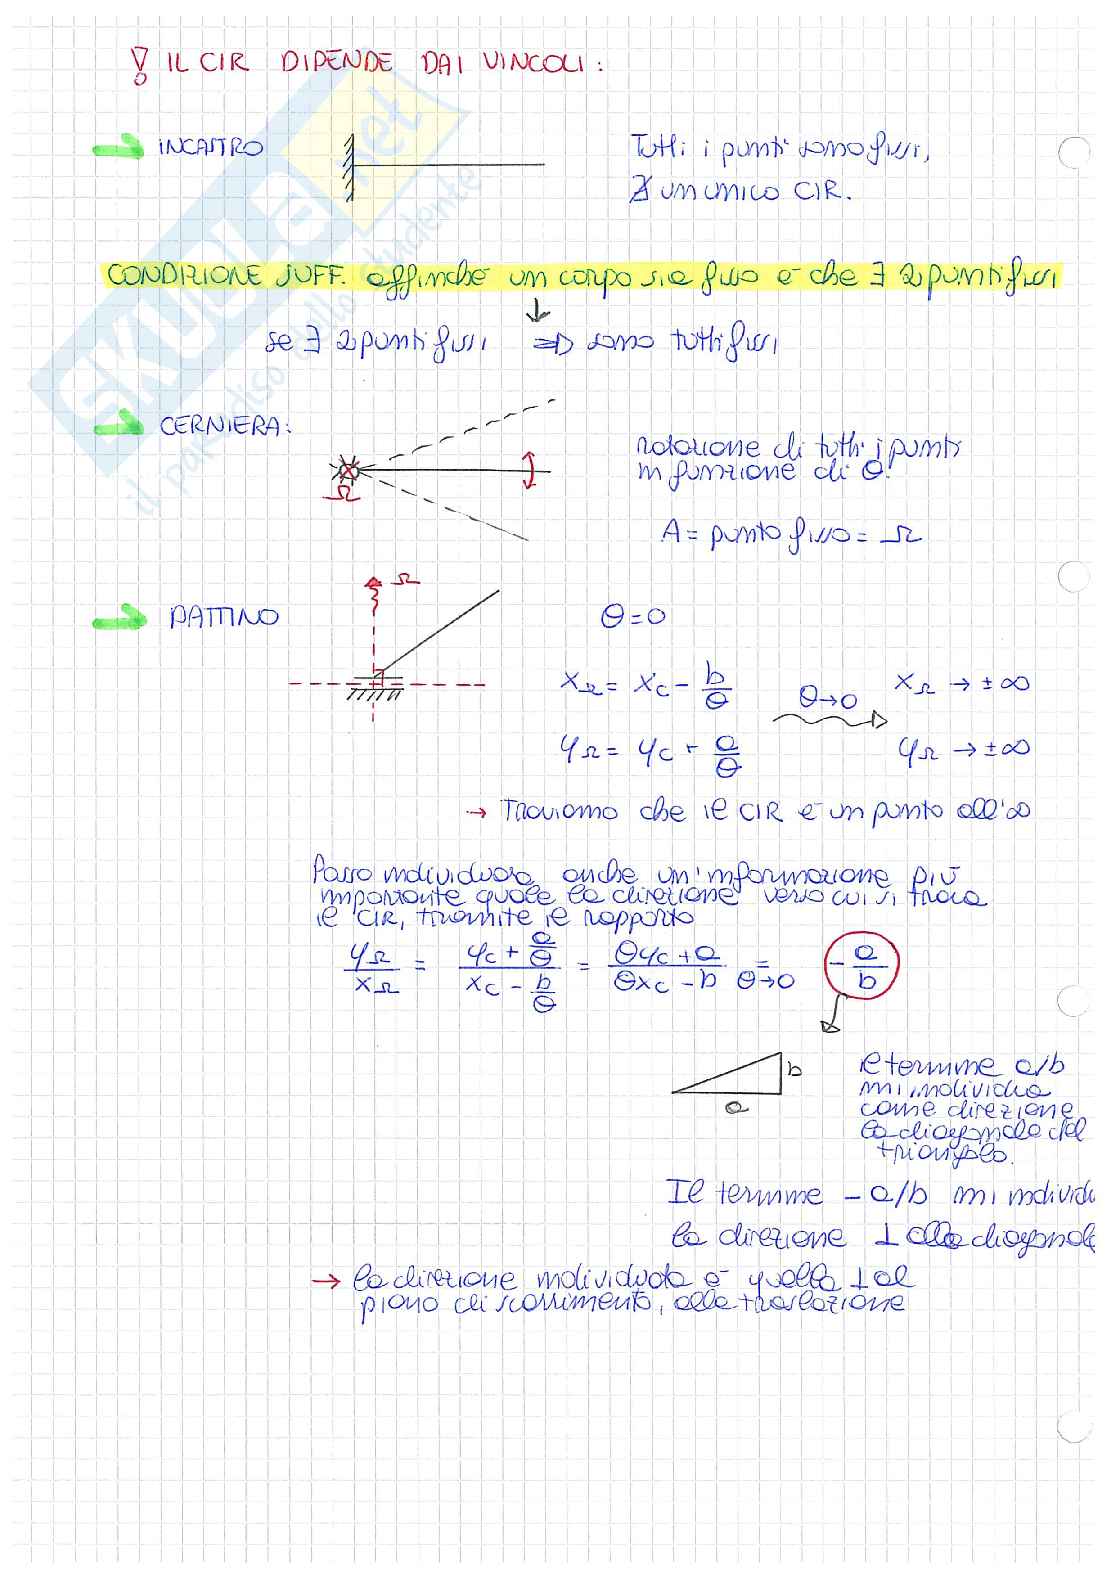 ! IL CIR DIPENDE DAI VINCOLI:
INCASTRO
Tutti i punti sono fissi,
∄ un unico CIR.
CONDIZIONE SUFF. affinché un corpo sia fisso è che ∃ 2 punti fissi
se ∃ 2 punti fissi ⇒ sono tutti fissi
CERNIERA:
Ω
rotazione di tutti i punti
in funzione di θ.
A = punto fisso = Ω
PATTINO
Ω
θ=0
xΩ = xc - b/θ θ→0 xΩ → ±∞
yΩ = yc + a/θ yΩ → ±∞
→ Troviamo che il CIR è un punto all'∞
Posso individuare anche un'informazione più
importante quale la direzione verso cui si trova
il CIR, tramite il rapporto
yΩ/xΩ = (yc + a/θ)/(xc - b/θ) = (θyc + a)/(θxc - b) = θ→0 -a/b
b
a
il termine a/b
mi individua
come direzione
la diagonale del
triangolo.
Il termine - a/b mi individu
la direzione ⊥ alla diagonale
→ la direzione individuata è quella ⊥ al
piano di scorrimento, alla traslazione
SKUOLA.net
il paradiso dello studente